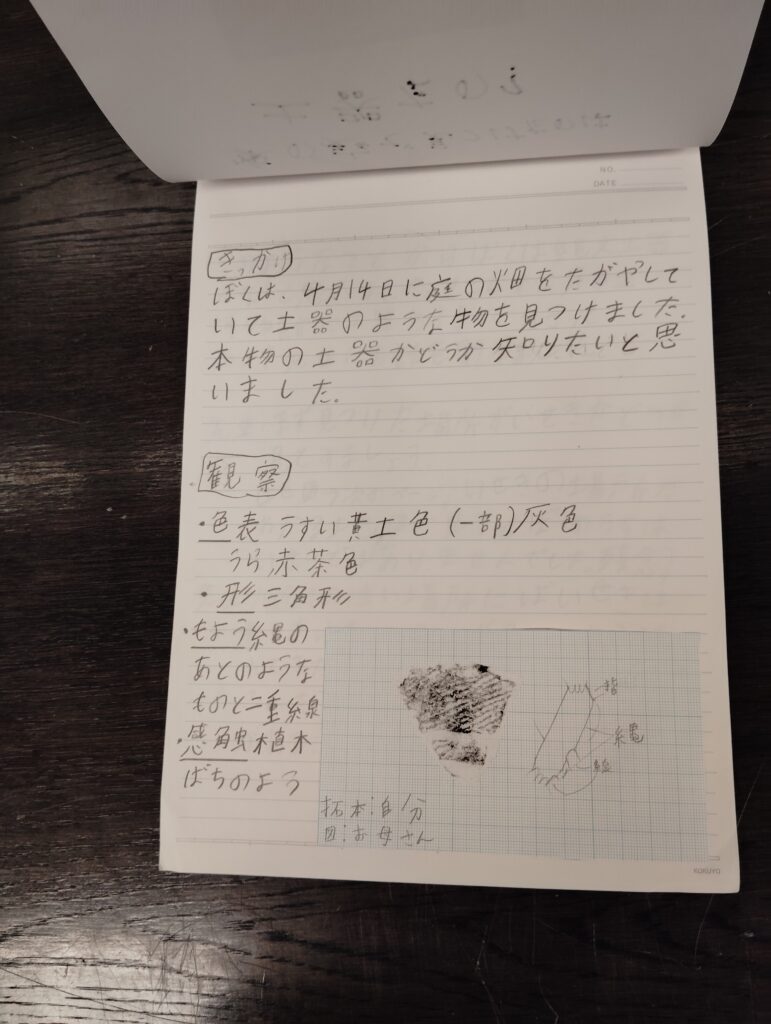 NO.
DATE
きっかけ
ぼくは、4月14日に庭の畑をたがやして
いて土器のような物を見つけました。
本物の土器かどうか知りたいと思
いました。
観察
・色表 うすい黄土色(一部)灰色
うら赤茶色
・形 三角形
・もよう縄の
あとのような
ものと二重線
・感触植木
ばちのよう
指
縄
線
拓本:自分
図:お母さん
KOKUYO